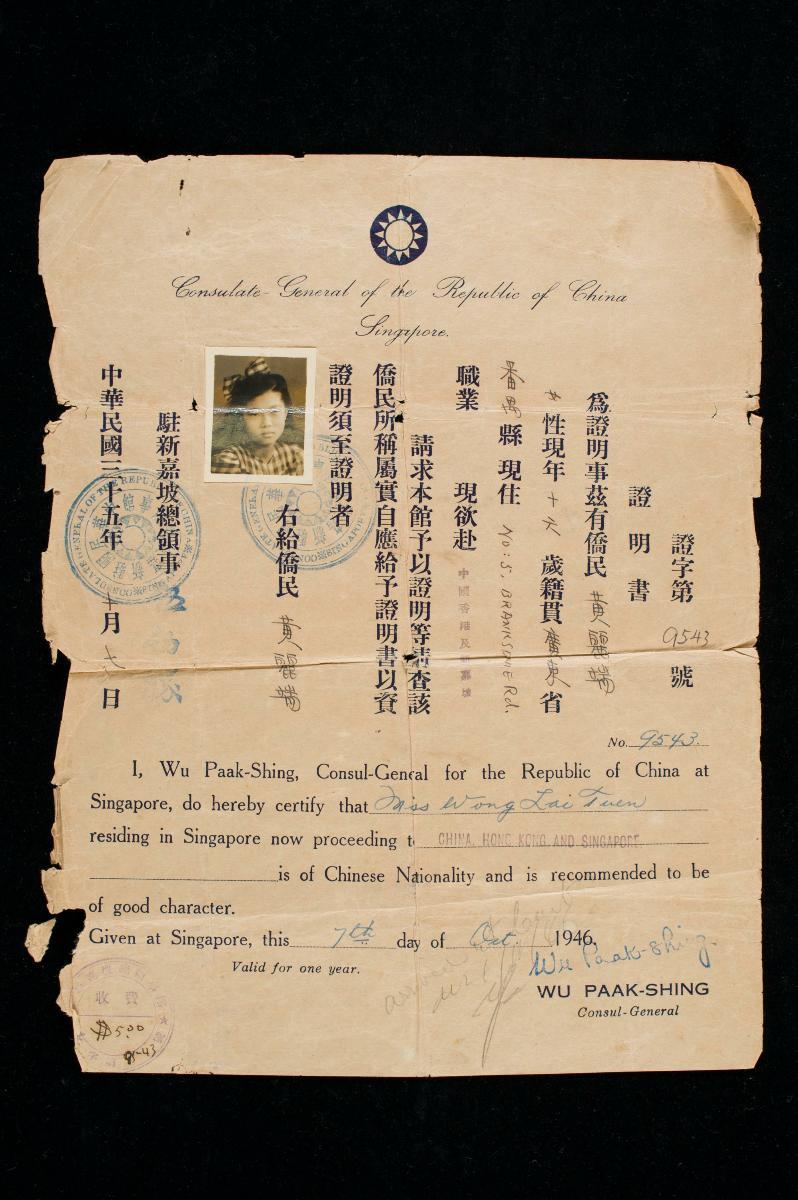 Consulate-General of the Republic of China
Singapore.
證字第 9543 號
證明書
為證明事茲有僑民 黃麗端
女性現年 十六 歲籍貫 廣東 省
番禺 縣現住 No: 5, BRANKSOME Rd.
職業 現欲赴 中國香港及新嘉坡
請求本館予以證明等情查該
僑民所稱屬實自應給予證明書以資
證明須至證明者
右給僑民 黃麗端
駐新嘉坡總領事
中華民國三十五年 十月 七日
No. 9543.
I, Wu Paak-Shing, Consul-General for the Republic of China at
Singapore, do hereby certify that Miss Wong Lai Tuen
residing in Singapore now proceeding to CHINA, HONG KONG AND SINGAPORE
is of Chinese Nationality and is recommended to be
of good character.
Given at Singapore, this 7th day of Oct. 1946.
Valid for one year.
Wu Paak-Shing
WU PAAK-SHING
Consul-General
收費
$5.00
9543